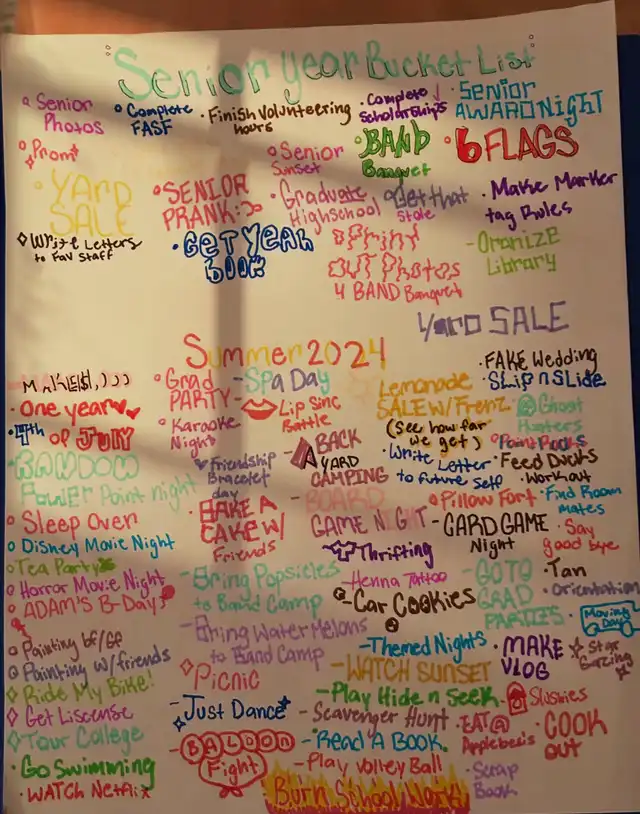 Senior Year Bucket List
Senior
Photos
Complete
FASF
Finish Volunteering
hours
Complete
Scholarships
SENIOR
AWARD NIGHT
Prom
Senior
Sunset
BAND
Banquet
6 FLAGS
YARD
SALE
SENIOR
PRANK
Graduate
Highschool
Get that
stole
Make Marker
tag Rules
Write Letters
to Fav Staff
GET YEAR
BOOK
Print
OUT Photos
4 BAND Banquet
Oranize
Library
Yard SALE
Summer 2024
One year
4th of JULY
RANDOM
Power Point night
Sleep Over
Disney Movie Night
Tea Party
Horror Movie Night
ADAM'S B-Day
Painting bf/gf
Painting w/friends
Ride My Bike!
Get Liscense
Tour College
Go Swimming
WATCH Netflix
Grad
PARTY
Karaoke
Night
Friendship
Bracelet
day
BAKE A
CAKE W/
Friends
Bring Popsicles
to Band Camp
Bring Water Melons
to Band Camp
Picnic
Just Dance
BALOON
Fight
Spa Day
Lip Sinc
Battle
BACK
YARD
CAMPING
BOARD
GAME NIGHT
Thrifting
Henna Tattoo
Car Cookies
Themed Nights
WATCH SUNSET
Play Hide n Seek
Scavenger Hunt
Read A Book
Play Volley Ball
Burn School Work
Lemonade
SALE w/ Frenz
(See how far
we get)
Write Letter
to future self
Pillow Fort
CARD GAME
Night
GO TO
GRAD
PARTIES
MAKE
VLOG
Slushies
EAT@
Applebee's
Scrap
Book
FAKE Wedding
Slip n Slide
Ghost
Hunters
Paint Rocks
Feed Ducks
Workout
Find Room
mates
Say
good bye
Tan
Orientation
Moving
Day
Star
Gazing
COOK
OUT